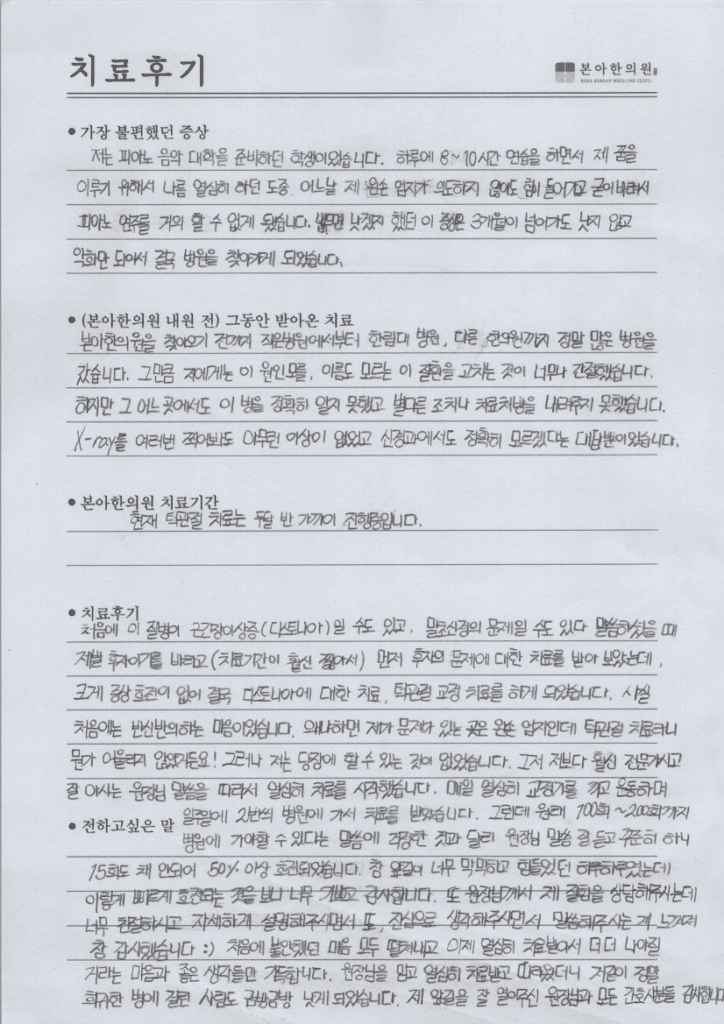 치료후기
본아한의원
BONA KOREAN MEDICINE CLINIC
• 가장 불편했던 증상
저는 피아노 음악 대학을 준비하던 학생이었습니다. 하루에 8~10시간 연습을 하면서 제 꿈을
이루기 위해서 나름 열심히 하던 도중 어느날 제 왼손 엄지가 의도하지 않아도 힘이 들어가고 굳어버려서
피아노 연주를 거의 할 수 없게 됐습니다. 낫겠지 했던 이 증상은 3개월이 넘어가도 낫지 않고
악화만 되어서 결국 병원을 찾아가게 되었습니다.
• (본아한의원 내원 전) 그동안 받아온 치료
본아한의원을 찾아오기 전까지 작은병원에서부터 한림대 병원, 다른 한의원까지 정말 많은 병원을
갔습니다. 그만큼 저에게는 이 원인모를, 이름도 모르는 이 질환을 고치는 것이 너무나 간절했습니다.
하지만 그 어느곳에서도 이 병을 정확히 알지 못했고 별다른 조치나 치료처방을 내려주지 못했습니다.
X-ray를 여러번 찍어봐도 아무런 이상이 없었고 신경과에서도 정확히 모르겠다는 대답뿐이었습니다.
• 본아한의원 치료기간
현재 턱관절 치료는 두달 반 가까이 진행중입니다.
• 치료후기
처음에 이 질병이 근긴장이상증(디스토니아)일 수도 있고, 말초신경의 문제일 수도 있다 말씀하셨을 때
제발 후자이기를 바라고(치료기간이 훨씬 짧아서) 먼저 후자의 문제에 대한 치료를 받아 보았는데,
크게 증상 호전이 없어 결국 디스토니아에 대한 치료, 턱관절 교정 치료를 하게 되었습니다. 사실
처음에는 반신반의하는 마음이었습니다. 왜냐하면 제가 문제가 있는 곳은 왼손 엄지인데 턱관절 치료라니
뭔가 어울리지 않았거든요! 그러나 저는 당장에 할 수 있는 것이 없었습니다. 그저 저보다 훨씬 전문가시고
잘 아시는 원장님 말씀을 따라서 열심히 치료를 시작했습니다. 매일 열심히 교정기를 끼고 운동하며
일주일에 2번씩 병원에 가서 치료를 받았습니다. 그런데 원래 100회~200회까지
• 전하고싶은 말
병원에 가야할 수 있다는 말씀에 걱정한 것과 달리 원장님 말씀 잘 듣고 꾸준히 하니
15회도 채 안되어 50% 이상 호전되었습니다. 참 앞길이 너무 막막하고 힘들었던 하루하루였는데
이렇게 빠르게 호전되는 것을 보니 너무 기쁘고 감사합니다. 또 원장님께서 제 질환을 상담해주시는데
너무 친절하시고 자세하게 설명해주시면서 또, 진심으로 생각해주시면서 말씀해주시는게 느껴져
참 감사했습니다 :) 처음에 불안했던 마음 모두 떨쳐내고 이제 열심히 치료받아서 더 더 나아질
거라는 마음과 좋은 생각들만 가득합니다. 원장님을 믿고 열심히 치료받고 따라왔더니 저같이 정말
희귀한 병에 걸린 사람도 금방금방 낫게 되었습니다. 제 앞길을 잘 열어주신 원장님과 모든 간호사분들 감사합니다